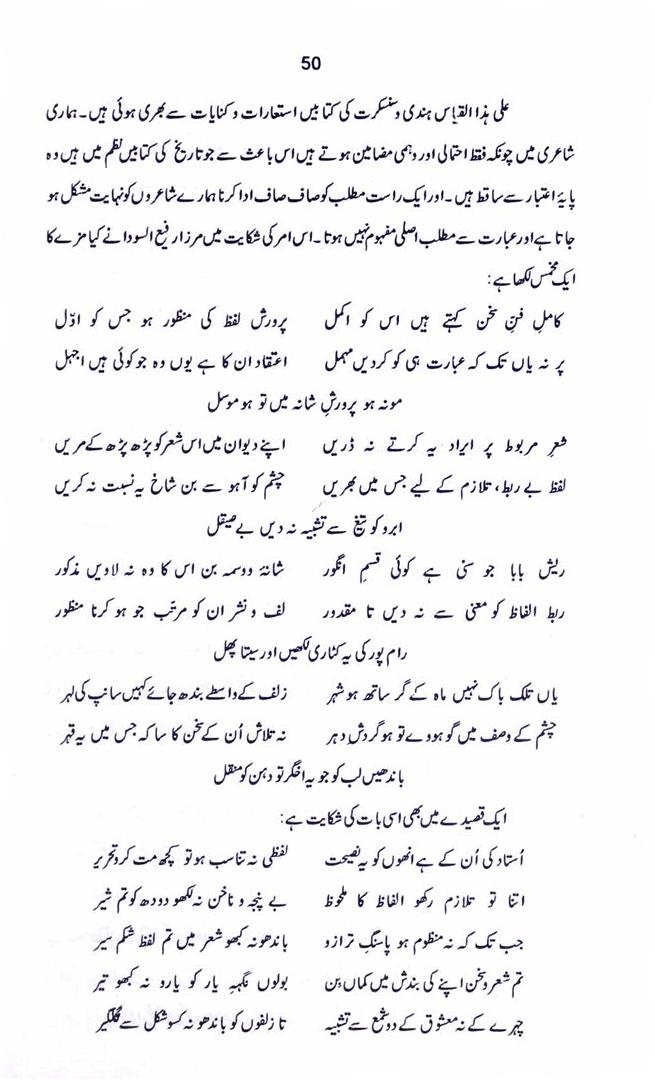 50
علی ہذا القیاس ہندی و سنسکرت کی کتابیں استعارات و کنایات سے بھری ہوئی ہیں۔ ہماری
شاعری میں چونکہ فقط احتمالی اور وہمی مضامین ہوتے ہیں اس باعث سے جو تاریخ کی کتابیں نظم میں ہیں وہ
پایۂ اعتبار سے ساقط ہیں۔ اور ایک راست مطلب کو صاف صاف ادا کرنا ہمارے شاعروں کو نہایت مشکل ہو
جاتا ہے اور عبارت سے مطلب اصلی مفہوم نہیں ہوتا۔ اس امر کی شکایت میں مرزا رفیع السودا نے کیا مزے کا
ایک مخمس لکھا ہے:
کاملِ فنِّ سخن کہتے ہیں اس کو اکمل پرورش لفظ کی منظور ہو جس کو اوّل
پر نہ یاں تک کہ عبارت ہی کو کردیں مہمل اعتقاد ان کا ہے یوں وہ جو کوئی ہیں اجہل
مو نہ ہو پرورشِ شانہ میں تو ہو موسل
شعرِ مربوط پر ایراد یہ کرتے نہ ڈریں اپنے دیوان میں اس شعر کو پڑھ پڑھ کے مریں
لفظ بے ربط، تلازم کے لیے جس میں بھریں چشم کو آہو سے بن شاخ یہ نسبت نہ کریں
ابرو کو تیغ سے تشبیہ نہ دیں بے صیقل
ریش بابا جو سنی ہے کوئی قسمِ انگور شانۂ و وسمہ بن اس کا وہ نہ لاویں مذکور
ربط الفاظ کو معنی سے نہ دیں تا مقدور لف و نشر ان کو مرتّب جو ہو کرنا منظور
رام پور کی یہ کٹاری لکھیں اور سیتا پھل
یاں تلک باک نہیں ماہ کے گر ساتھ ہو شہر زلف کے واسطے بندھ جائے کہیں سانپ کی لہر
چشم کے وصف میں گو ہووے تو ہو گردشِ دہر نہ تلاش اُن کے سخن کا سا کہ جس میں یہ قہر
باندھیں لب کو جو یہ اخگر تو دہن کو منقل
ایک قصیدے میں بھی اسی بات کی شکایت ہے:
اُستاد کی اُن کے ہے انھوں کو یہ نصیحت لفظی نہ تناسب ہو تو کچھ مت کرو تحریر
اتنا تو تلازم رکھو الفاظ کا ملحوظ بے پنجہ و ناخن نہ لکھو دودھ کو تم شیر
جب تک کہ نہ منظوم ہو پاسنگِ ترازو باندھو نہ کبھو شعر میں تم لفظ شکم سیر
تم شعر و سخن اپنے کی بندش میں کماں بن بولوں نگہہِ یار کو یارو نہ کبھو تیر
چہرے کے نہ معشوق کے دو شمع سے تشبیہ تا زلفوں کو باندھو نہ کسو شکل سے گلگیر